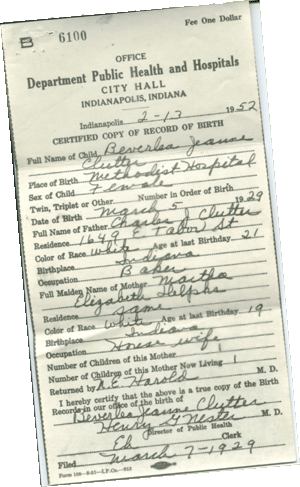 B 6100
Fee One Dollar
OFFICE
Department Public Health and Hospitals
CITY HALL
INDIANAPOLIS, INDIANA
Indianapolis 2-13 1952
CERTIFIED COPY OF RECORD OF BIRTH
Full Name of Child Beverlea Jeanne
Clutter
Place of Birth Methodist Hospital
Sex of Child Female
Twin, Triplet or Other Number in Order of Birth
Date of Birth March 5 1929
Full Name of Father Charles J Clutter
Residence 1649 E Tabor St
Color of Race White Age at last Birthday 21
Birthplace Indiana
Occupation Baker
Full Maiden Name of Mother Martha
Elizabeth Helphs
Residence same
Color of Race White Age at last Birthday 19
Birthplace Indiana
Occupation House wife
Number of Children of this Mother
Number of Children of this Mother Now Living 1
Returned by R.E. Harold M. D.
I hereby certify that the above is a true copy of the Birth
Records in our office of the birth of
Beverlea Jeanne Clutter
Henry G Nester M. D.
Director of Public Health
Clerk
Filed March 7-1929